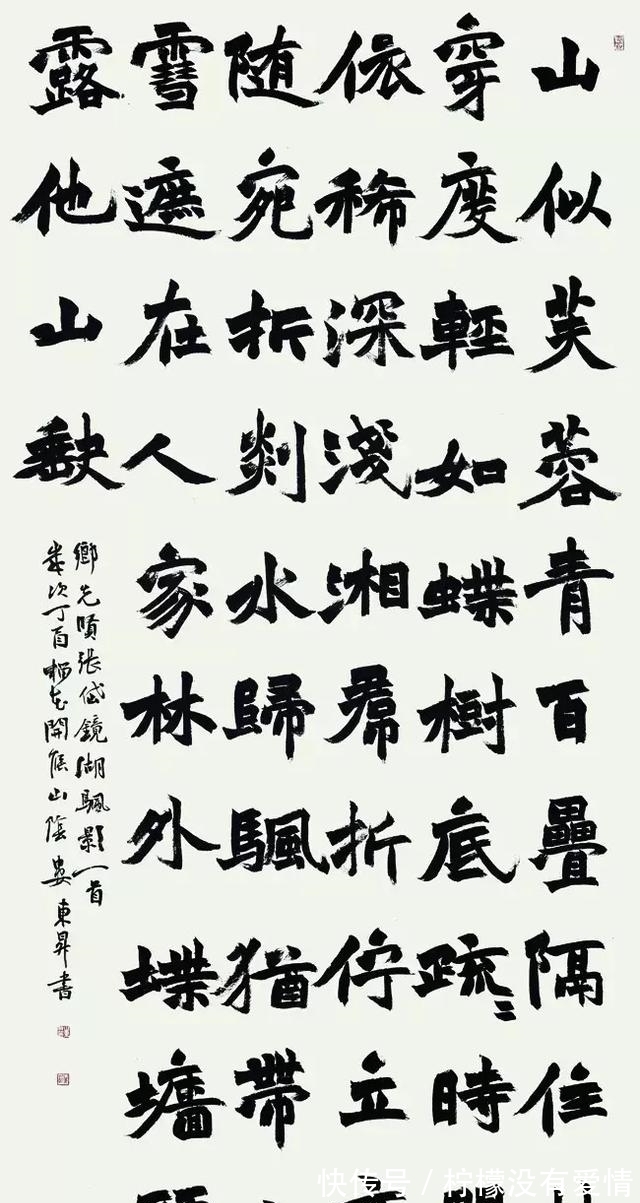 山似芙蓉青百疊隔住
穿度輕如蝶樹底疏〻時
依稀深淺湘帬折佇立
随宛折剡水歸颿猶帶
雪遮在人家林外堞墻
露他山缺
鄉先賢張岱鏡湖颿影一首
歲次丁酉梅花開候山陰婁東昇書
快传号 / 柠檬没有爱情